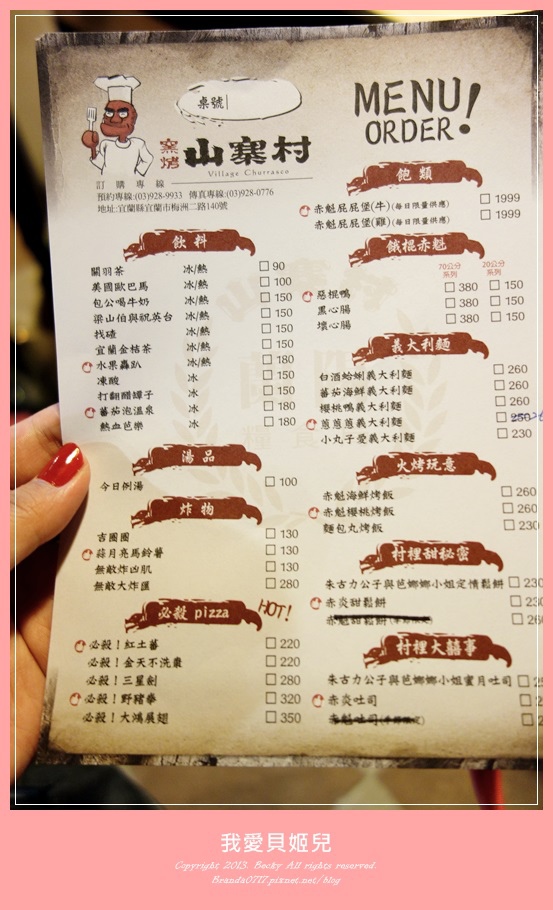 桌號
MENU
ORDER!
窯烤 山寨村
Village Churrasco
訂購專線
預約專線:(03)928-9933 傳真專線:(03)928-0776
地址:宜蘭縣宜蘭市梅洲二路140號
飲料
關羽茶 冰/熱 □ 90
英國歐巴馬 冰/熱 □ 100
包公喝牛奶 冰/熱 □ 150
梁山伯與祝英台 冰/熱 □ 150
找碴 冰/熱 □ 150
宜蘭金桔茶 冰/熱 □ 150
水果轟趴 冰/熱 □ 180
凍酸 冰 □ 150
打翻醋罈子 冰 □ 150
蕃茄泡溫泉 冰 □ 180
熱血芭樂 冰 □ 180
湯品
今日例湯 □ 100
炸物
吉圈圈 □ 130
蒜月亮馬鈴薯 □ 130
無敵炸凶肌 □ 130
無敵大炸匯 □ 280
必殺 pizza HOT!
必殺!紅土蕃 □ 220
必殺!金天不洗棗 □ 220
必殺!三星劍 □ 280
必殺!野豬拳 □ 320
必殺!大鴻展翅 □ 350
飽類
赤魁屁屁堡(牛)(每日限量供應) □ 1999
赤魁屁屁堡(雞)(每日限量供應) □ 1999
餓棍赤魁
70公分系列 20公分系列
惡棍鴨 □ 380 □ 150
黑心腸 □ 380 □ 150
壞心腸 □ 380 □ 150
義大利麵
白酒蛤蜊義大利麵 □ 260
蕃茄海鮮義大利麵 □ 260
櫻桃鴨義大利麵 □ 260
蔥蔥蔥義大利麵 □ 250
小丸子愛義大利麵 □ 230
火烤玩意
赤魁海鮮烤飯 □ 260
赤魁櫻桃烤飯 □ 260
麵包丸烤飯 □ 230
村裡甜秘密
朱古力公子與芭娜娜小姐定情鬆餅 □ 230
赤炎甜鬆餅 □ 230
赤魁甜鬆餅
村裡大囍事
朱古力公子與芭娜娜小姐蜜月吐司
赤炎吐司
赤魁吐司
我愛貝姬兒
Copyright 2013. Becky All rights reserved.
Branda0717.pixnet.net/blog